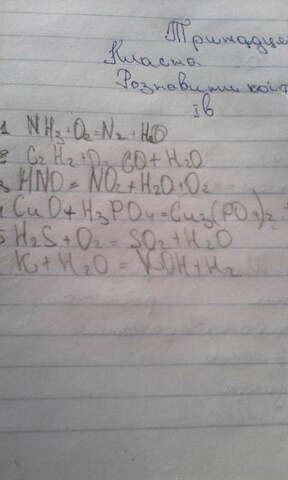 Тринадце
Класна
Розставити коеф
ів
1 NH3+O2=N2+H2O
2 C2H2+O2 CO+H2O
3 HNO=NO2+H2O+O2
4 CuO+H3PO4=Cu3(PO4)2 +
5 H2S+O2=SO2+H2O
K+H2O=KOH+H2